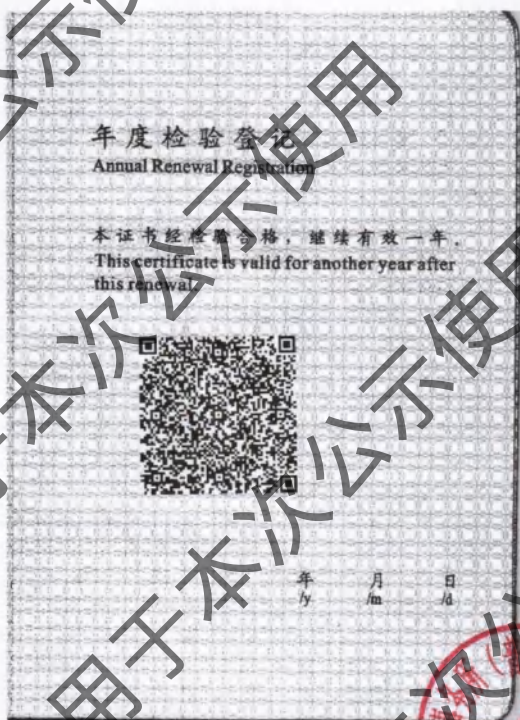 年度检验登记
Annual Renewal Registration
本证书经检验合格，继续有效一年。
This certificate is valid for another year after
this renewal.
年 月 日
/y /m /d
用于本次公示使用